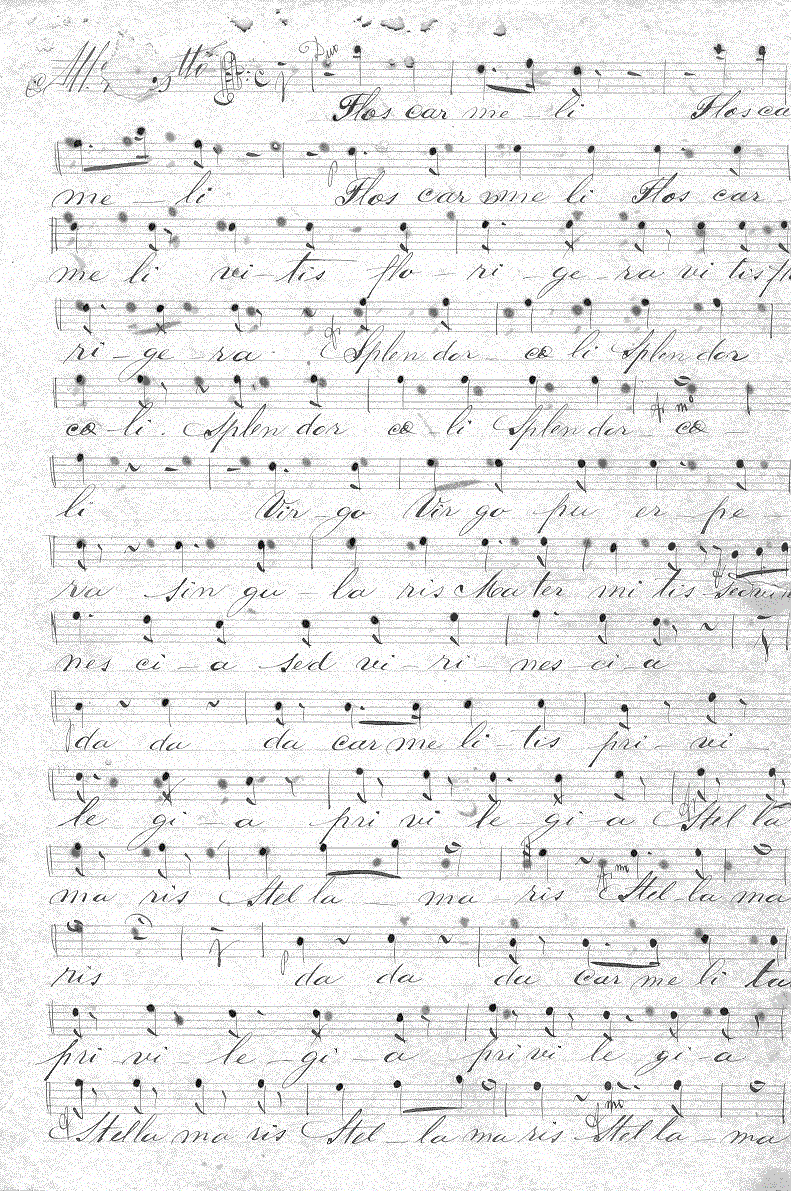 All.tto Duo
Flos car me - li Flos ca
me - li p Flos car me li Flos car -
me li vi - tis flo - ri - ge - ra vi tis fl
ri - ge - ra. Splen dor - cœ li Splen dor
cœ - li. Splen dor cœ - li Splen dor - cœ -
li Vir - go Vir go pu er - pe -
ra sin gu - la ris Ma ter mi tis sed vi ri
nes ci - a sed vi - ri - nes - ci - a
p da da da car me li - tis pri - vi -
le gi - a pri vi le - gi - a Stel la
ma ris Stel la - ma - ris Stel - la ma
ris p da da da car me li
pri - vi - le - gi - a pri vi le gi - a
Stella ma ris Stel - la ma ris Stel la - ma